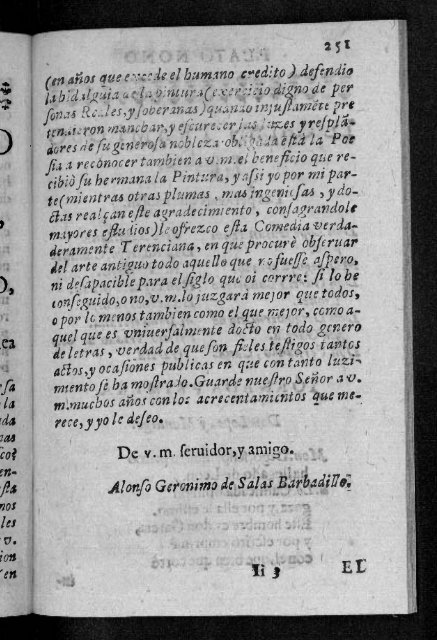 251
(en años que excede el humano credito) defendio
la hidalguia de la pintura (exercicio digno de per
sonas Reales, y soberanas) quanto injustamẽte pre
tendieron manchar, y escurecer las luzes y resplã-
dores de su generosa nobleza obligada està la Poe
sia a reconocer tambien a v.m. el beneficio que re-
cibiò su hermana la Pintura, y assi yo por mi par-
te (mientras otras plumas, mas ingeniosas, y do-
ctas realçan este agradecimiento, consagrandole
mayores estudios) le ofrezco esta Comedia verda-
deramente Terenciana, en que procurè obseruar
del arte antiguo todo aquello que no fuesse aspero,
ni desapacible para el siglo que oi corrre: si lo he
conseguido, o no, v.m. lo juzgarà mejor que todos,
o por lo menos tambien como el que mejor, como a-
quel que es vniuersalmente docto en todo genero
de letras, verdad de que son fieles testigos tantos
actos, y ocasiones publicas en que con tanto luzi-
miento se ha mostrado. Guarde nuestro Señor a v.
m. muchos años con los acrecentamientos que me-
rece, y yo le deseo.
De v. m. seruidor, y amigo.
Alonso Geronimo de Salas Barbadillo.
Ii 3
EL